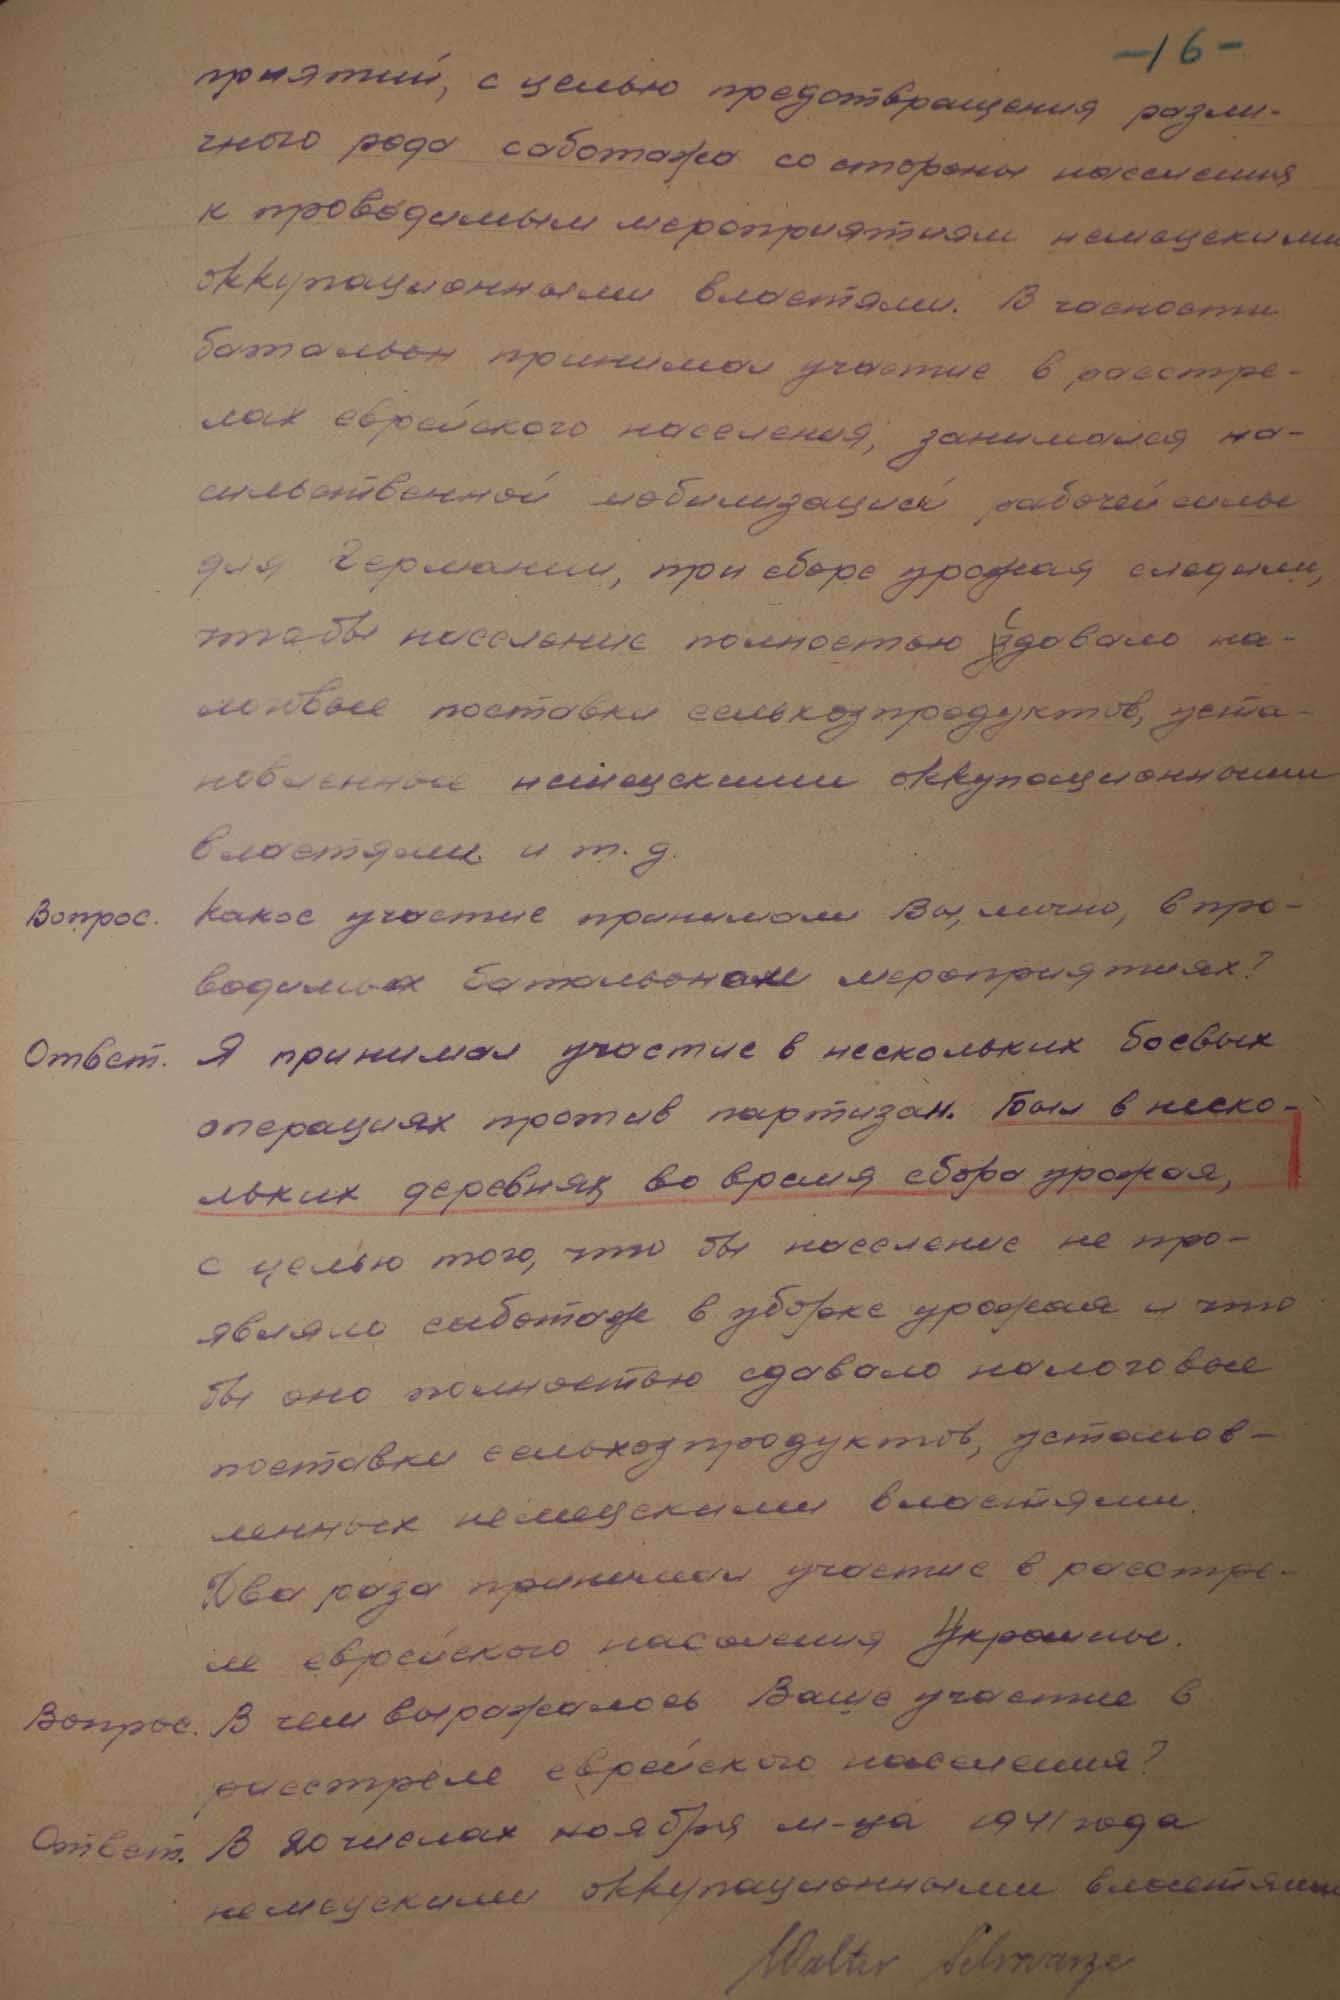 -16-
приятий, с целью предотвращения разли-
чного рода саботажа со стороны населения
к проводимым мероприятиям немецкими
оккупационными властями. В часности
батальон принимал участие в расстре-
лах еврейского населения, занимался на-
сильственной мобилизацией рабочей силы
для Германии, при сборе урожая следили,
чтобы население полностью сдавало на-
логовые поставки сельхозпродуктов, уста-
новленные немецкими оккупационными
властями и т.д.
Вопрос. Какое участие принимали Вы, лично, в про-
водимых батальоном мероприятиях?
Ответ. Я принимал участие в нескольких боевых
операциях против партизан. Был в неско-
льких деревнях во время сбора урожая,
с целью того, что бы население не про-
являло саботаж в уборке урожая и что
бы оно полностью сдавало налоговые
поставки сельхозпродуктов, установ-
ленных немецкими властями.
Два раза принимал участие в расстре-
ле еврейского населения Украины.
Вопрос. В чем выражалось Ваше участие в
расстреле еврейского населения?
Ответ. В 20 числах ноября м-ца 1941 года
немецкими оккупационными властями
Walter Schwarze